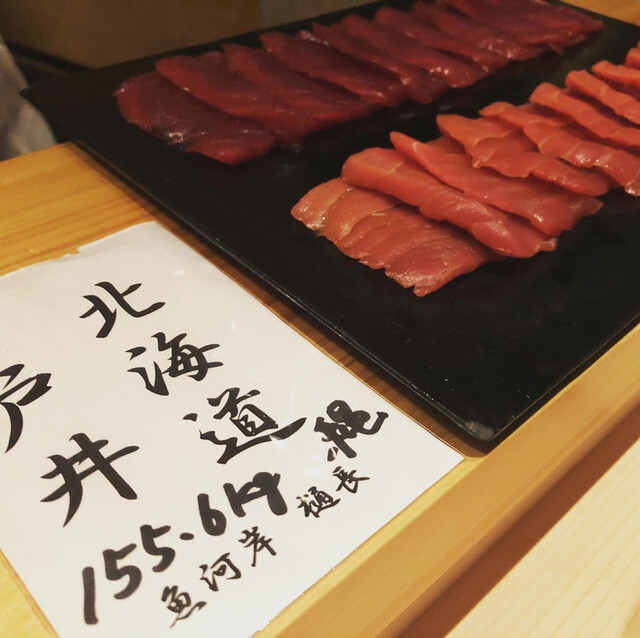 北海道
戸井
155.6kg
縄
魚河岸
樋長